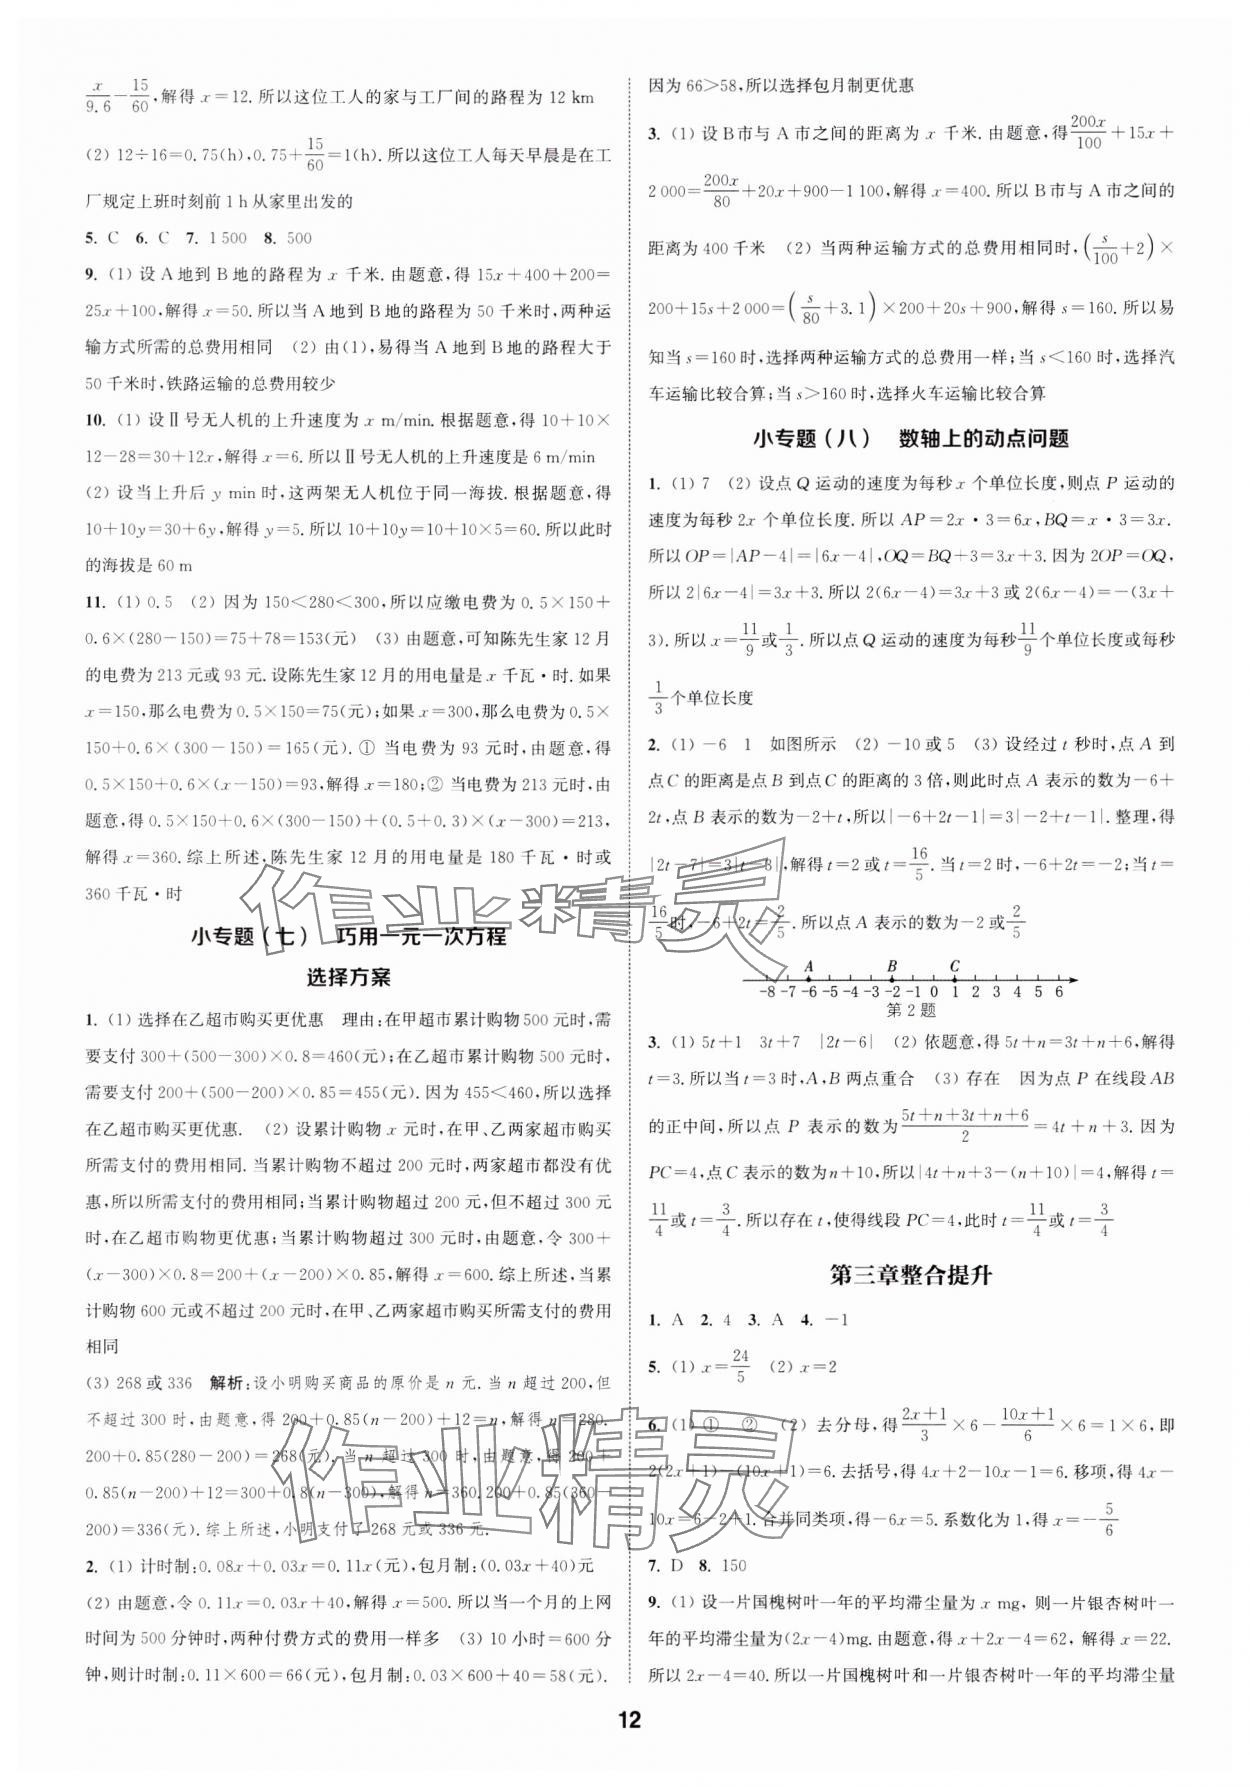 x/9.6－15/60,解得 x＝12.所以这位工人的家与工厂间的路程为 12 km
(2) 12÷16＝0.75(h),0.75＋15/60＝1(h).所以这位工人每天早晨是在工
厂规定上班时刻前 1 h 从家里出发的
5. C 6. C 7. 1 500 8. 500
9. (1) 设 A 地到 B 地的路程为 x 千米.由题意,得 15x＋400＋200＝
25x＋100,解得 x＝50.所以当 A 地到 B 地的路程为 50 千米时,两种运
输方式所需的总费用相同 (2) 由(1),易得当 A 地到 B 地的路程大于
50 千米时,铁路运输的总费用较少
10. (1) 设Ⅱ号无人机的上升速度为 x m/min.根据题意,得 10＋10×
12－28＝30＋12x,解得 x＝6.所以Ⅱ号无人机的上升速度是 6 m/min
(2) 设当上升后 y min 时,这两架无人机位于同一海拔.根据题意,得
10＋10y＝30＋6y,解得 y＝5.所以 10＋10y＝10＋10×5＝60.所以此时
的海拔是 60 m
11. (1) 0.5 (2) 因为 150＜280＜300,所以应缴电费为 0.5×150＋
0.6×(280－150)＝75＋78＝153(元) (3) 由题意,可知陈先生家 12 月
的电费为 213 元或 93 元.设陈先生家 12 月的用电量是 x 千瓦·时.如果
x＝150,那么电费为 0.5×150＝75(元);如果 x＝300,那么电费为 0.5×
150＋0.6×(300－150)＝165(元).① 当电费为 93 元时,由题意,得
0.5×150＋0.6×(x－150)＝93,解得 x＝180;② 当电费为 213 元时,由
题意,得 0.5×150＋0.6×(300－150)＋(0.5＋0.3)×(x－300)＝213,
解得 x＝360.综上所述,陈先生家 12 月的用电量是 180 千瓦·时或
360 千瓦·时
小专题(七) 巧用一元一次方程
选择方案
1. (1) 选择在乙超市购买更优惠 理由:在甲超市累计购物 500 元时,需
要支付 300＋(500－300)×0.8＝460(元);在乙超市累计购物 500 元时,
需要支付 200＋(500－200)×0.85＝455(元).因为 455＜460,所以选择
在乙超市购买更优惠. (2) 设累计购物 x 元时,在甲、乙两家超市购买
所需支付的费用相同.当累计购物不超过 200 元时,两家超市都没有优
惠,所以所需支付的费用相同;当累计购物超过 200 元,但不超过 300 元
时,在乙超市购物更优惠;当累计购物超过 300 元时,由题意,令 300＋
(x－300)×0.8＝200＋(x－200)×0.85,解得 x＝600.综上所述,当累
计购物 600 元或不超过 200 元时,在甲、乙两家超市购买所需支付的费用
相同
(3) 268 或 336 解析:设小明购买商品的原价是 n 元.当 n 超过 200,但
不超过 300 时,由题意,得 200＋0.85(n－200)＋12＝n,解得 n＝280.
200＋0.85(280－200)＝268(元).当 n 超过 300 时,由题意,得 200＋
0.85(n－200)＋12＝300＋0.8(n－300),解得 n＝360.200＋0.85(360－
200)＝336(元).综上所述,小明支付了 268 元或 336 元.
2. (1) 计时制:0.08x＋0.03x＝0.11x(元),包月制:(0.03x＋40)元
(2) 由题意,令 0.11x＝0.03x＋40,解得 x＝500.所以当一个月的上网
时间为 500 分钟时,两种付费方式的费用一样多 (3) 10 小时＝600 分
钟,则计时制:0.11×600＝66(元),包月制:0.03×600＋40＝58(元).
因为 66＞58,所以选择包月制更优惠
3. (1) 设 B 市与 A 市之间的距离为 x 千米.由题意,得200x/100＋15x＋
2 000＝200x/80＋20x＋900－1 100,解得 x＝400.所以 B 市与 A 市之间的
距离为 400 千米 (2) 当两种运输方式的总费用相同时,(s/100＋2)×
200＋15s＋2 000＝(s/80＋3.1)×200＋20s＋900,解得 s＝160.所以易
知当 s＝160 时,选择两种运输方式的总费用一样;当 s＜160 时,选择汽
车运输比较合算;当 s＞160 时,选择火车运输比较合算
小专题(八) 数轴上的动点问题
1. (1) 7 (2) 设点 Q 运动的速度为每秒 x 个单位长度,则点 P 运动的
速度为每秒 2x 个单位长度.所以 AP＝2x·3＝6x,BQ＝x·3＝3x.
所以 OP＝|AP－4|＝|6x－4|,OQ＝BQ＋3＝3x＋3.因为 2OP＝OQ,
所以 2|6x－4|＝3x＋3.所以 2(6x－4)＝3x＋3 或 2(6x－4)＝－(3x＋
3).所以 x＝11/9或1/3.所以点 Q 运动的速度为每秒11/9个单位长度或每秒
1/3个单位长度
2. (1) －6 1 如图所示 (2) －10 或 5 (3) 设经过 t 秒时,点 A 到
点 C 的距离是点 B 到点 C 的距离的 3 倍,则此时点 A 表示的数为－6＋
2t,点 B 表示的数为－2＋t,所以|－6＋2t－1|＝3|－2＋t－1|.整理,得
|2t－7|＝3|t－3|,解得 t＝2 或 t＝16/5.当 t＝2 时,－6＋2t＝－2;当 t＝
16/5时,－6＋2t＝2/5.所以点 A 表示的数为－2 或2/5
A B C
-8 -7 -6 -5 -4 -3 -2 -1 0 1 2 3 4 5 6
第 2 题
3. (1) 5t＋1 3t＋7 |2t－6| (2) 依题意,得 5t＋n＝3t＋n＋6,解得
t＝3.所以当 t＝3 时,A,B 两点重合 (3) 存在 因为点 P 在线段 AB
的正中间,所以点 P 表示的数为(5t＋n＋3t＋n＋6)/2＝4t＋n＋3.因为
PC＝4,点 C 表示的数为 n＋10,所以|4t＋n＋3－(n＋10)|＝4,解得 t＝
11/4或 t＝3/4.所以存在 t,使得线段 PC＝4,此时 t＝11/4或 t＝3/4
第三章整合提升
1. A 2. 4 3. A 4. －1
5. (1) x＝24/5 (2) x＝2
6. (1) ① ② (2) 去分母,得(2x＋1)/3×6－(10x＋1)/6×6＝1×6,即
2(2x＋1)－(10x＋1)＝6.去括号,得 4x＋2－10x－1＝6.移项,得 4x－
10x＝6－2＋1.合并同类项,得－6x＝5.系数化为 1,得 x＝－5/6
7. D 8. 150
9. (1) 设一片国槐树叶一年的平均滞尘量为 x mg, 则一片银杏树叶一
年的平均滞尘量为(2x－4)mg.由题意,得 x＋2x－4＝62, 解得 x＝22.
所以 2x－4＝40.所以一片国槐树叶和一片银杏树叶一年的平均滞尘量
12
作业精灵
作业精灵